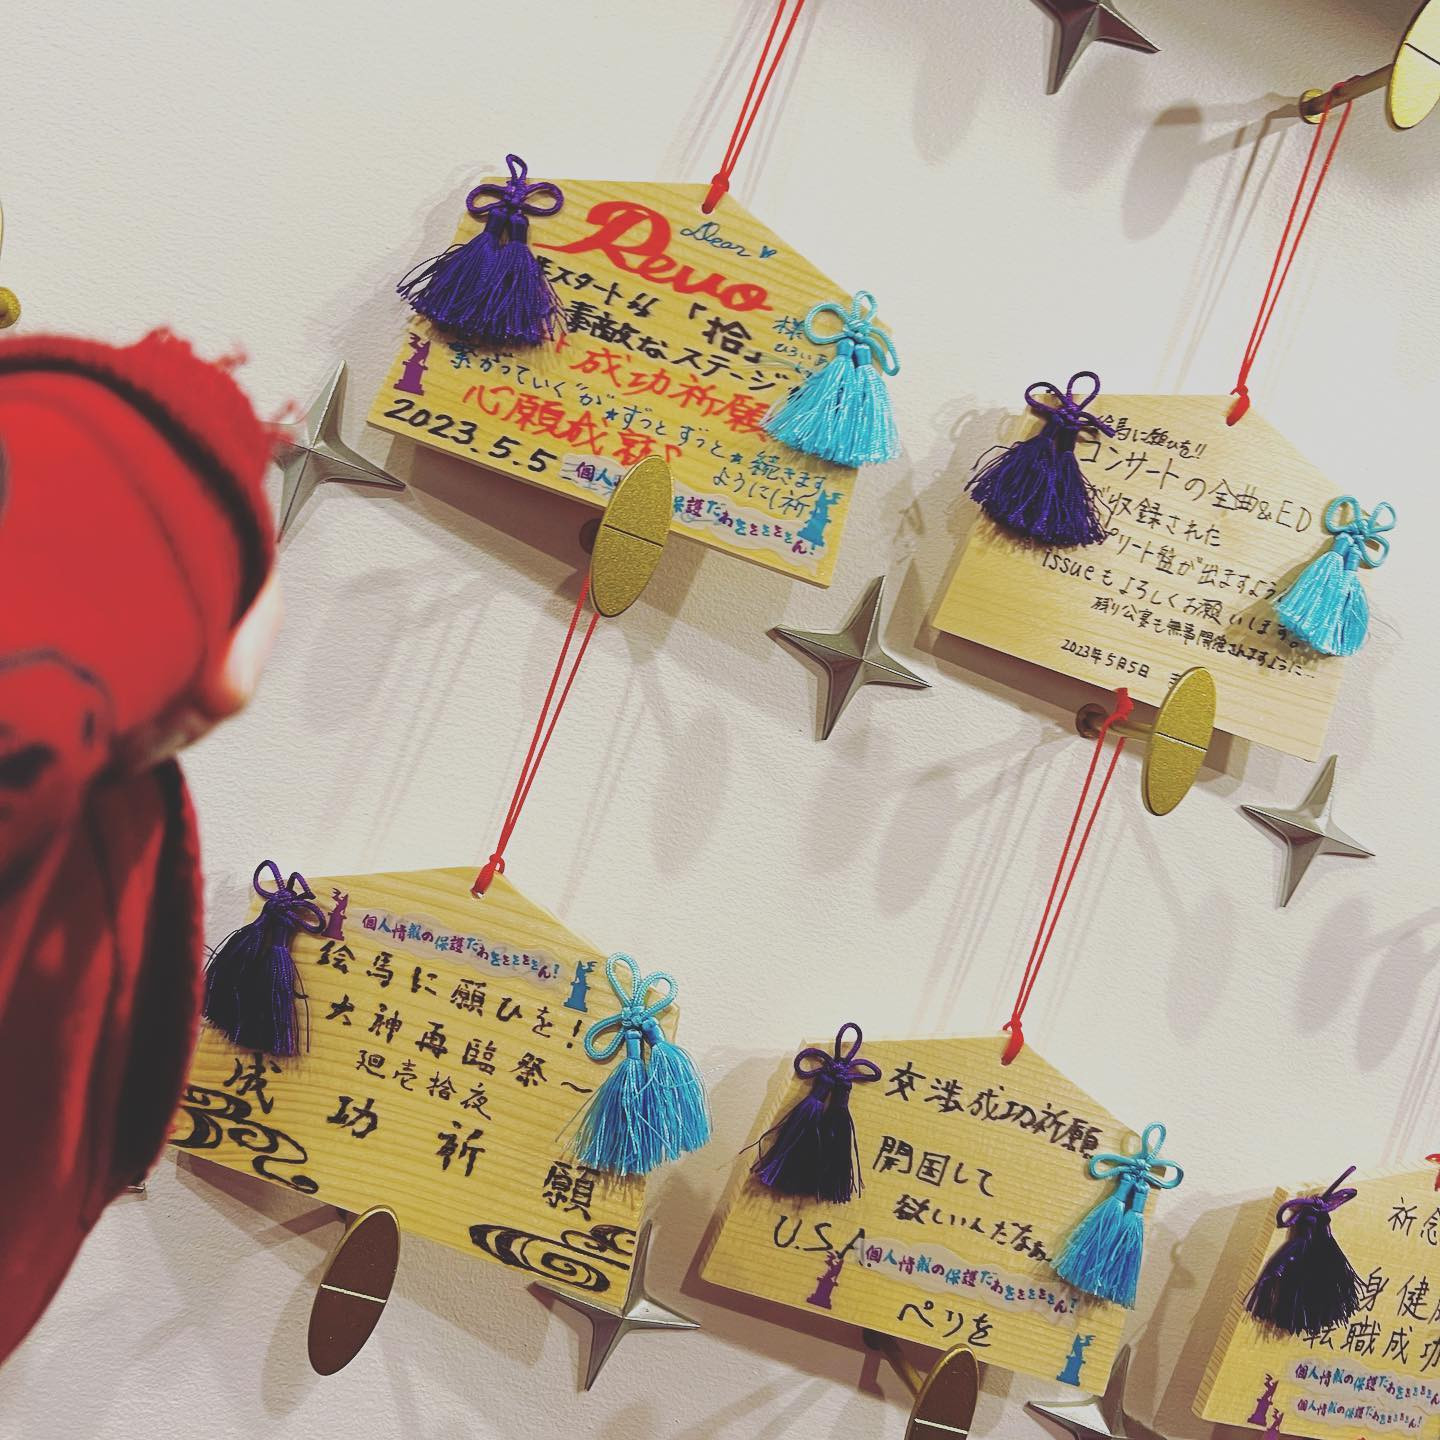 Dear
Revo
様
スタート 「拾」
ひろいあ
素敵なステージ
成功祈願
繋がっていく"が"★ずっとずっと★続きます
ようにし祈
心願成就
2023.5.5
個人
保護だわをををををん!
馬に願ひを!!
コンサートの全曲&ED
収録された
プリート盤が出ますよう
issueもよろしくお願いします。
残り公宴も無事開催されますように…
2023年5月5日
個人情報の保護だわをををををん!
絵馬に願ひを!
大神再臨祭〜
廻壱拾夜
成功祈願
交渉成功祈願
開国して
欲しいんだなぁ
U.S.A.
個人情報の保護だわをををををん!
ペリを
祈念
身健
転職成功
個人情報の保護だわをををををん
個人情報の保護だわをををををん!